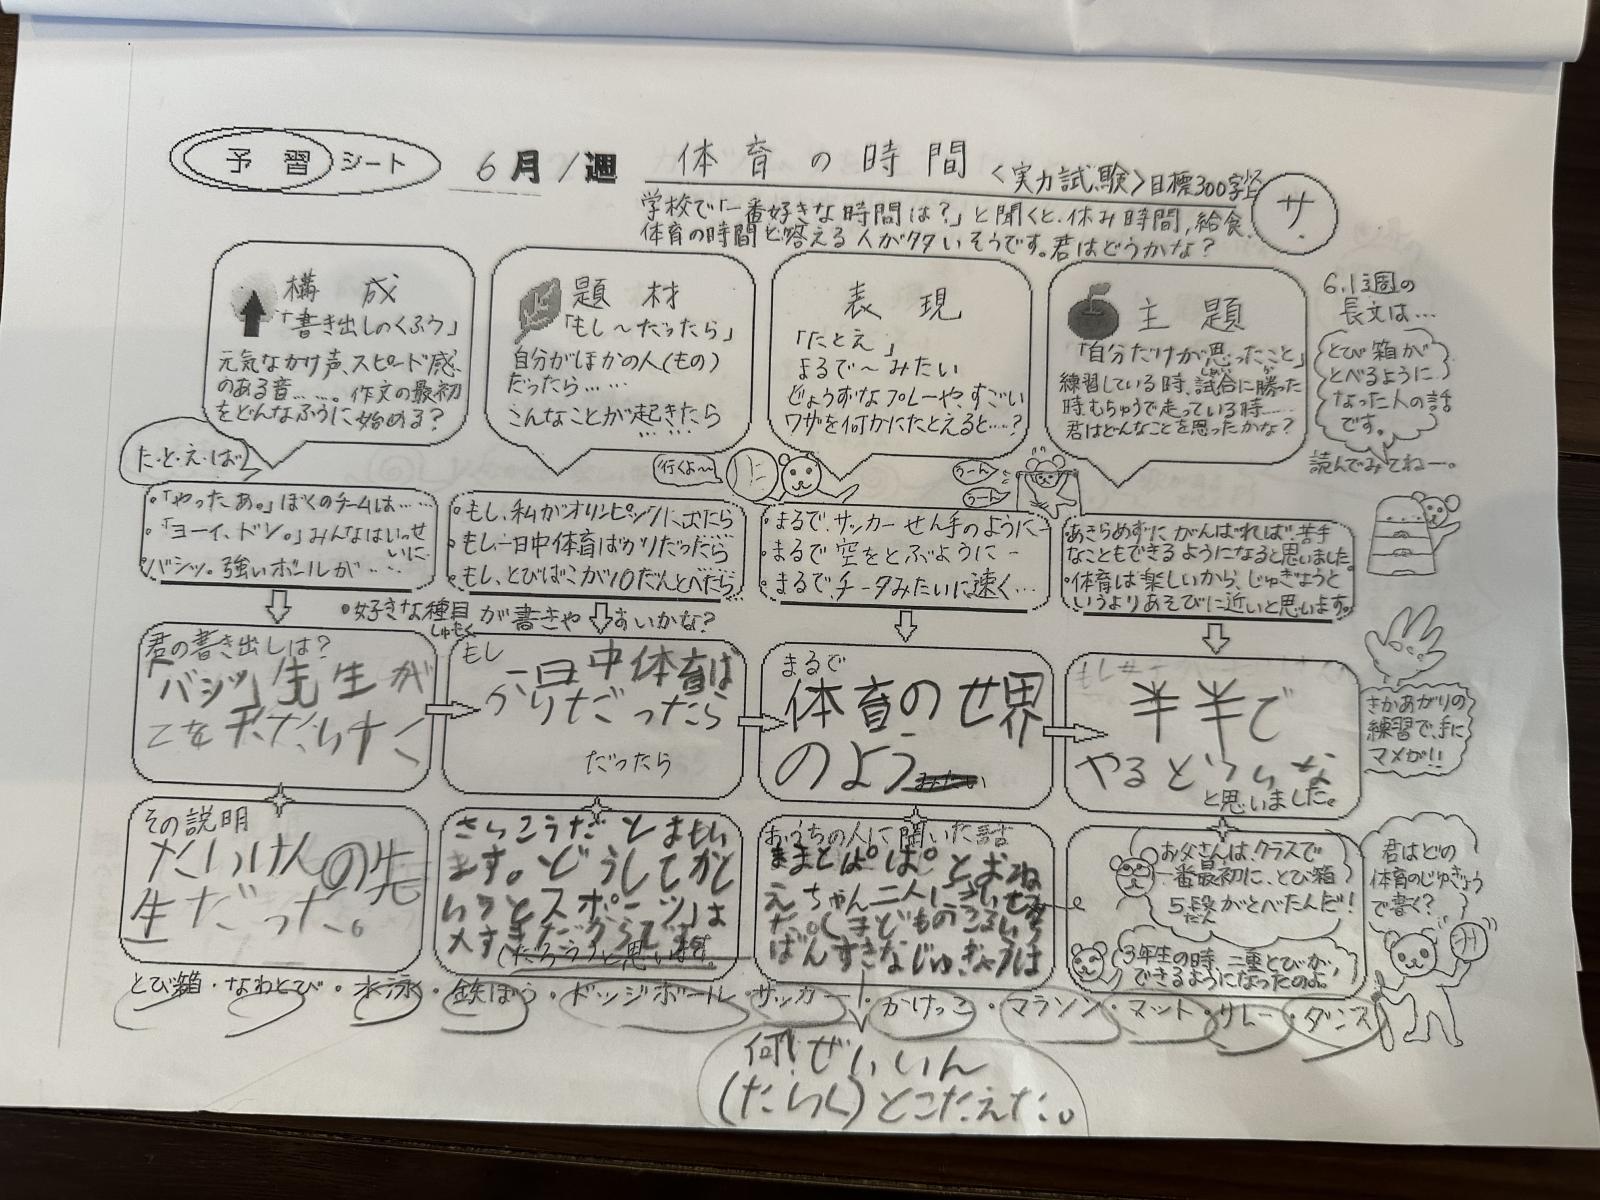 予習シート
6月1週
体育の時間
<実力試験>目標300字
サ
学校で「一番好きな時間は?」と聞くと、休み時間,給食,
体育の時間と答える人が多いそうです。君はどうかな?
構成
「書き出しのくふう」
元気なかけ声、スピード感
のある音……。作文の最初
をどんなふうに始める?
題材
「もし〜だったら」
自分がほかの人(もの)
だったら……
こんなことが起きたら
……
表現
「たとえ」
まるで〜みたい
じょうずなプレーや、すごい
ワザを何かにたとえると…?
主題
「自分だけが思ったこと」
練習している時、試合に勝った
時、もちゅうで走っている時……
君はどんなことを思ったかな?
6.1週の
長文は…
とび箱が
とべるように
なった人の話
です。
読んでみてねー。
た・と・え・ば
行くよ〜
うーん
うーん
・「やったあ。」ぼくのチームは……
・「ヨーイ、ドン。」みんなはいっせ
いに…
・バシッ。強いボールが……
・もし、私がオリンピックに出たら
・もし一日中体育ばかりだったら
・もし、とびばこが10だんとべたら…
・まるで、サッカーせん手のように…
・まるで空をとぶように…
・まるで、チータみたいに速く…
あきらめずにがんばれば、苦手
なこともできるようになると思いました。
・体育は楽しいから、じゅぎょうと
いうよりあそびに近いと思います。
・好きな種目が書きやすいかな?
しゅもく
君の書き出しは?
「バシッ」先生が
もし
一日中体育ば
かりだったら
だったら
まるで
体育のせ界
のよう
半半で
やるといいな
と思いました。
さかあがりの
練習で、手に
マメが!!
その説明
たいけんの先
生だった。
さいこうだとおもい
ます。どうしてかと
いうとスポーツは
おうちの人に聞いた話
ままとぱぱとおね
えちゃん二人に
ばんすきなじゅぎょうは
お父さんは、クラスで
一番最初に、とび箱
5段がとべたんだ!
だん
3年生の時、二重とびが、
できるようになったのよ。
君はどの
体育のじゅぎょう
で書く?
とび箱・なわとび・水泳・鉄ぼう・ドッジボール・サッカー・かけっこ・マラソン・マット・リレー・ダンス
何!ぜいいん
(たいく)とこたえた。